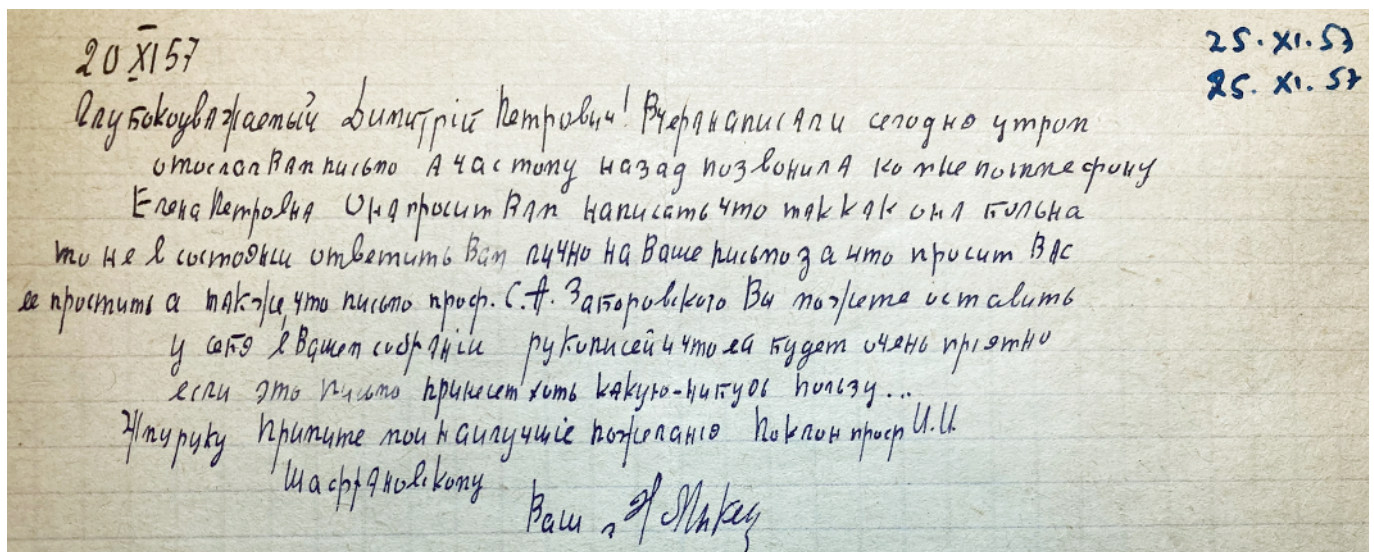 20 XI 57
25. XI. 57
25. XI. 57
Глубокоуважаемый Димитрій Петрович! Вчера написал и сегодня утром
отослал Вам письмо а час тому назад позвонила ко мне по телефону
Елена Петровна Она просит Вам написать что так как она больна
то не в состоянии ответить Вам лично на Ваше письмо за что просит Вас
ее простить а также, что письмо проф. С.А. Заборовского Вы можете оставить
у себя в Вашем собраніи рукописей и что ей будет очень пріятно
если это письмо принесет хоть какую-нибудь пользу...
Жму руку Примите мои наилучшіе пожеланія Поклон проф И.И.
Шафрановскому
Ваш